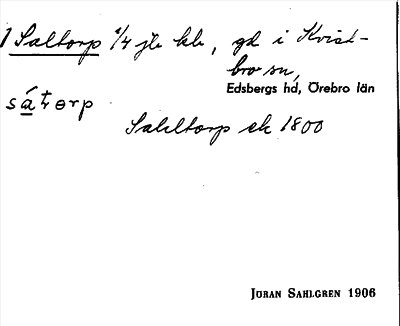 1 Saltorp 1/4 jb kb, gd i Kvist-
bro sn,
Edsbergs hd, Örebro län
Sahltorp ek 1800
Jöran Sahlgren 1906